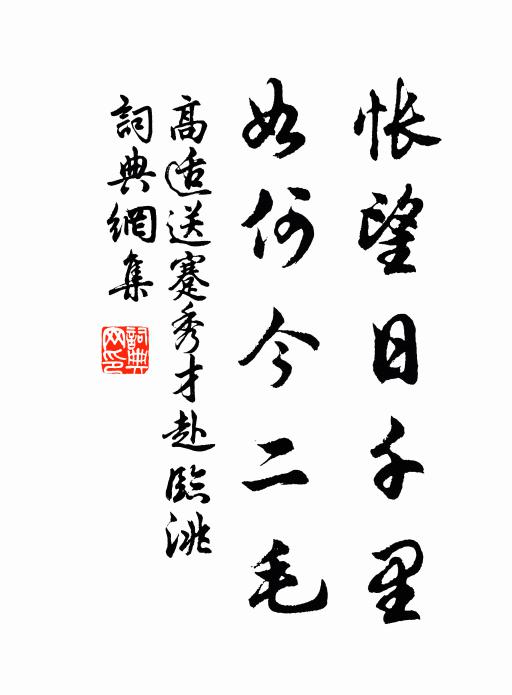 悵望日千里
如何今二毛
高適送蹇秀才赴臨洮
詞典網集
詞典網印